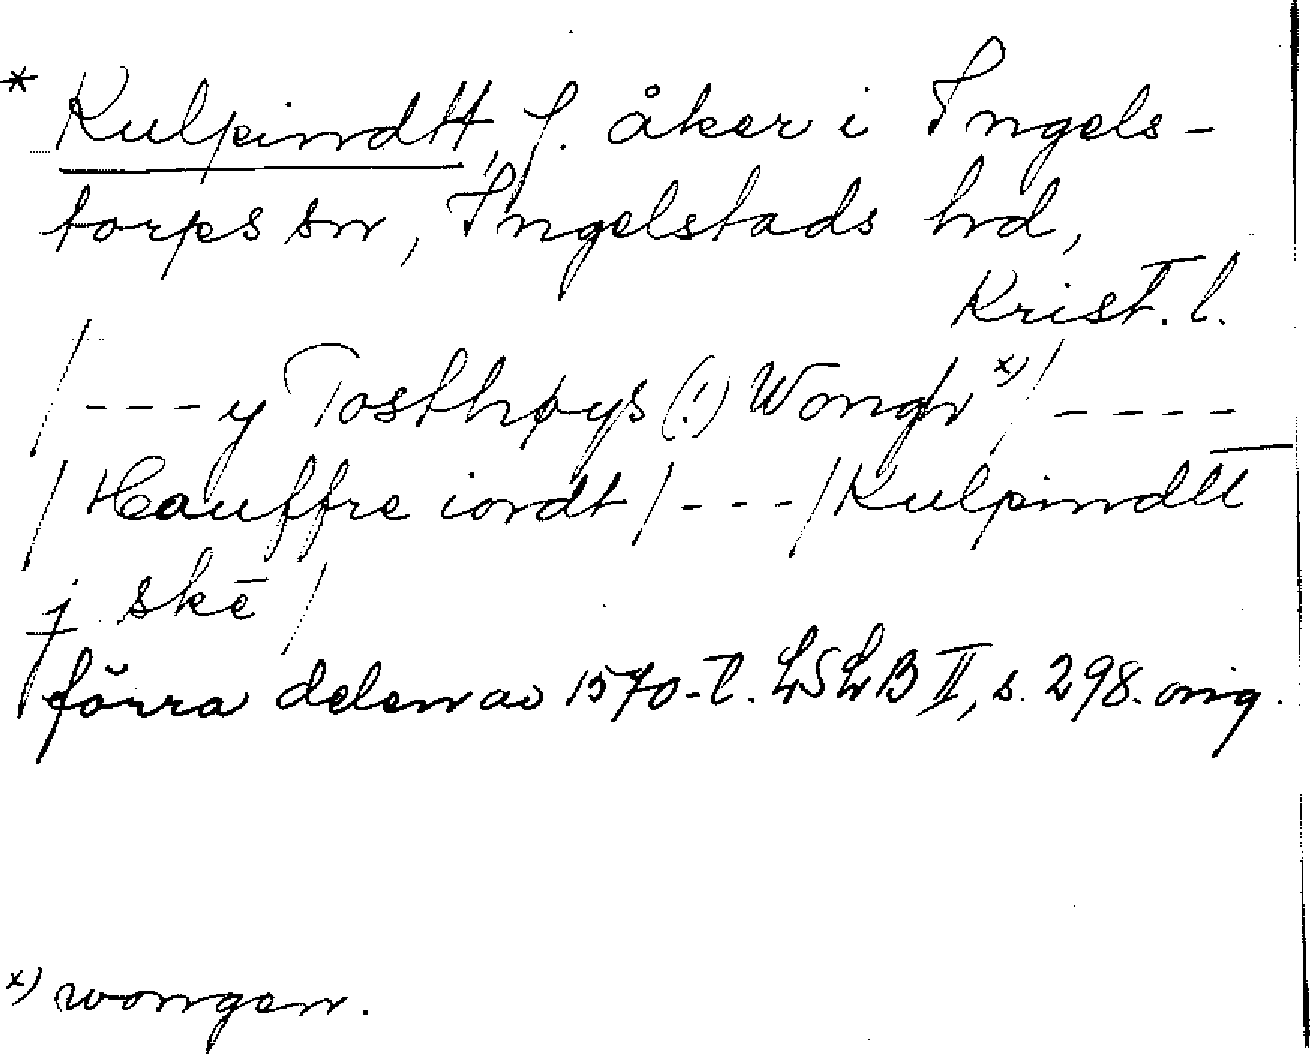 * Kulpindtt, f. åker i Ingels-
torps sn, Ingelstads hd,
Krist. l.
/ - - - y Tosthøys (!) Wongh x) / - - - -
/ Hauffre iordt / - - - / Kulpindtt
j skē /
förra delen av 1570-t. LSLB II, s. 298. orig.
x) wongen.